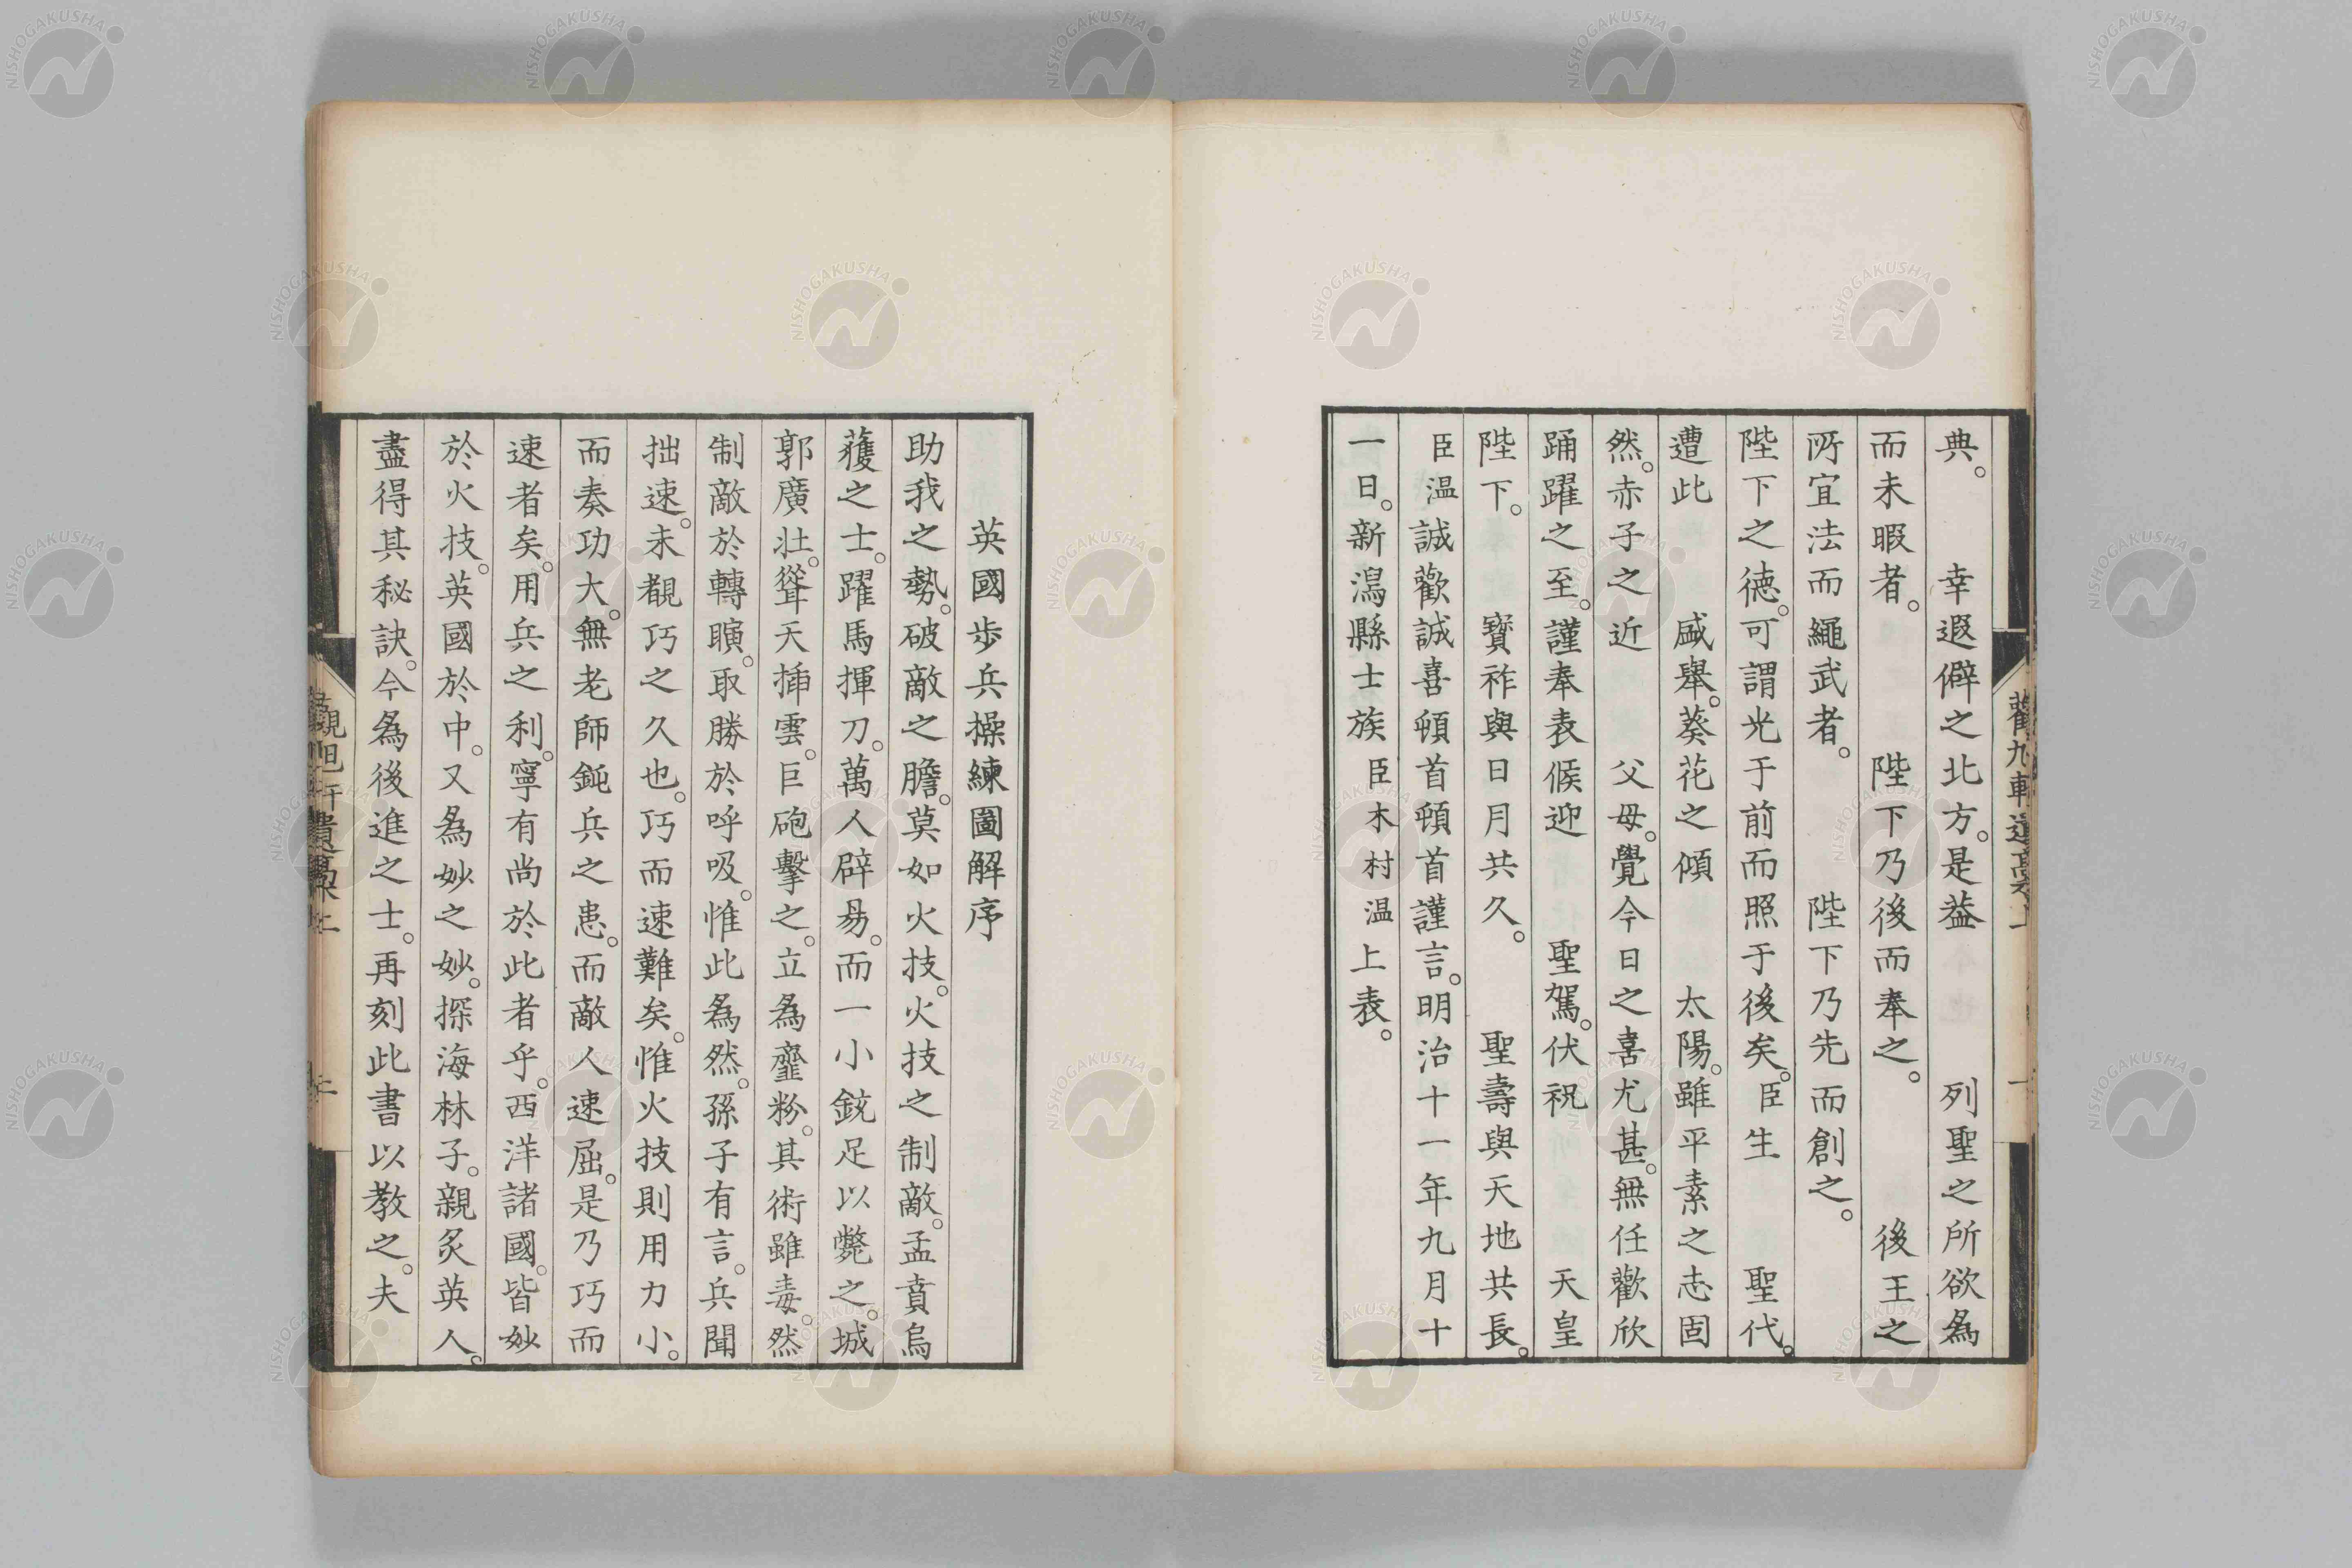 典。　幸遐僻之北方。是葢　列聖之所欲爲
而未暇者。　陛下乃後而奉之。　後王之
所宜法而繩武者。　陛下乃先而創之。
陛下之徳。可謂光于前而照于後矣。臣生　聖代。
遭此　盛舉。葵花之傾　太陽。雖平素之志固
然。赤子之近　父母。覺今日之喜尤甚。無任歡欣
踊躍之至。謹奉表候迎　聖駕。伏祝　天皇
陛下。　寳祚與日月共久。　聖壽與天地共長。
臣温誠歡誠喜頓首頓首謹言。明治十一年九月十
一日。新潟縣士族臣木村温上表。
英國歩兵操練圖解序
助我之勢。破敵之膽。莫如火技。火技之制敵。孟賁烏
獲之士。躍馬揮刀。萬人辟易。而一小銃足以斃之。城
郭廣壯。聳天揷雲。巨砲擊之。立爲齏粉。其術雖毒。然
制敵於轉瞚。取勝於呼吸。惟此爲然。孫子有言。兵聞
拙速。未覩巧之久也。巧而速難矣。惟火技則用力小。
而奏功大。無老師鈍兵之患。而敵人速屈。是乃巧而
速者矣。用兵之利。寧有尚於此者乎。西洋諸國。皆妙
於火技。英國於中。又爲妙之妙。探海林子。親炙英人。
盡得其秘訣。今爲後進之士。再刻此書以教之。夫